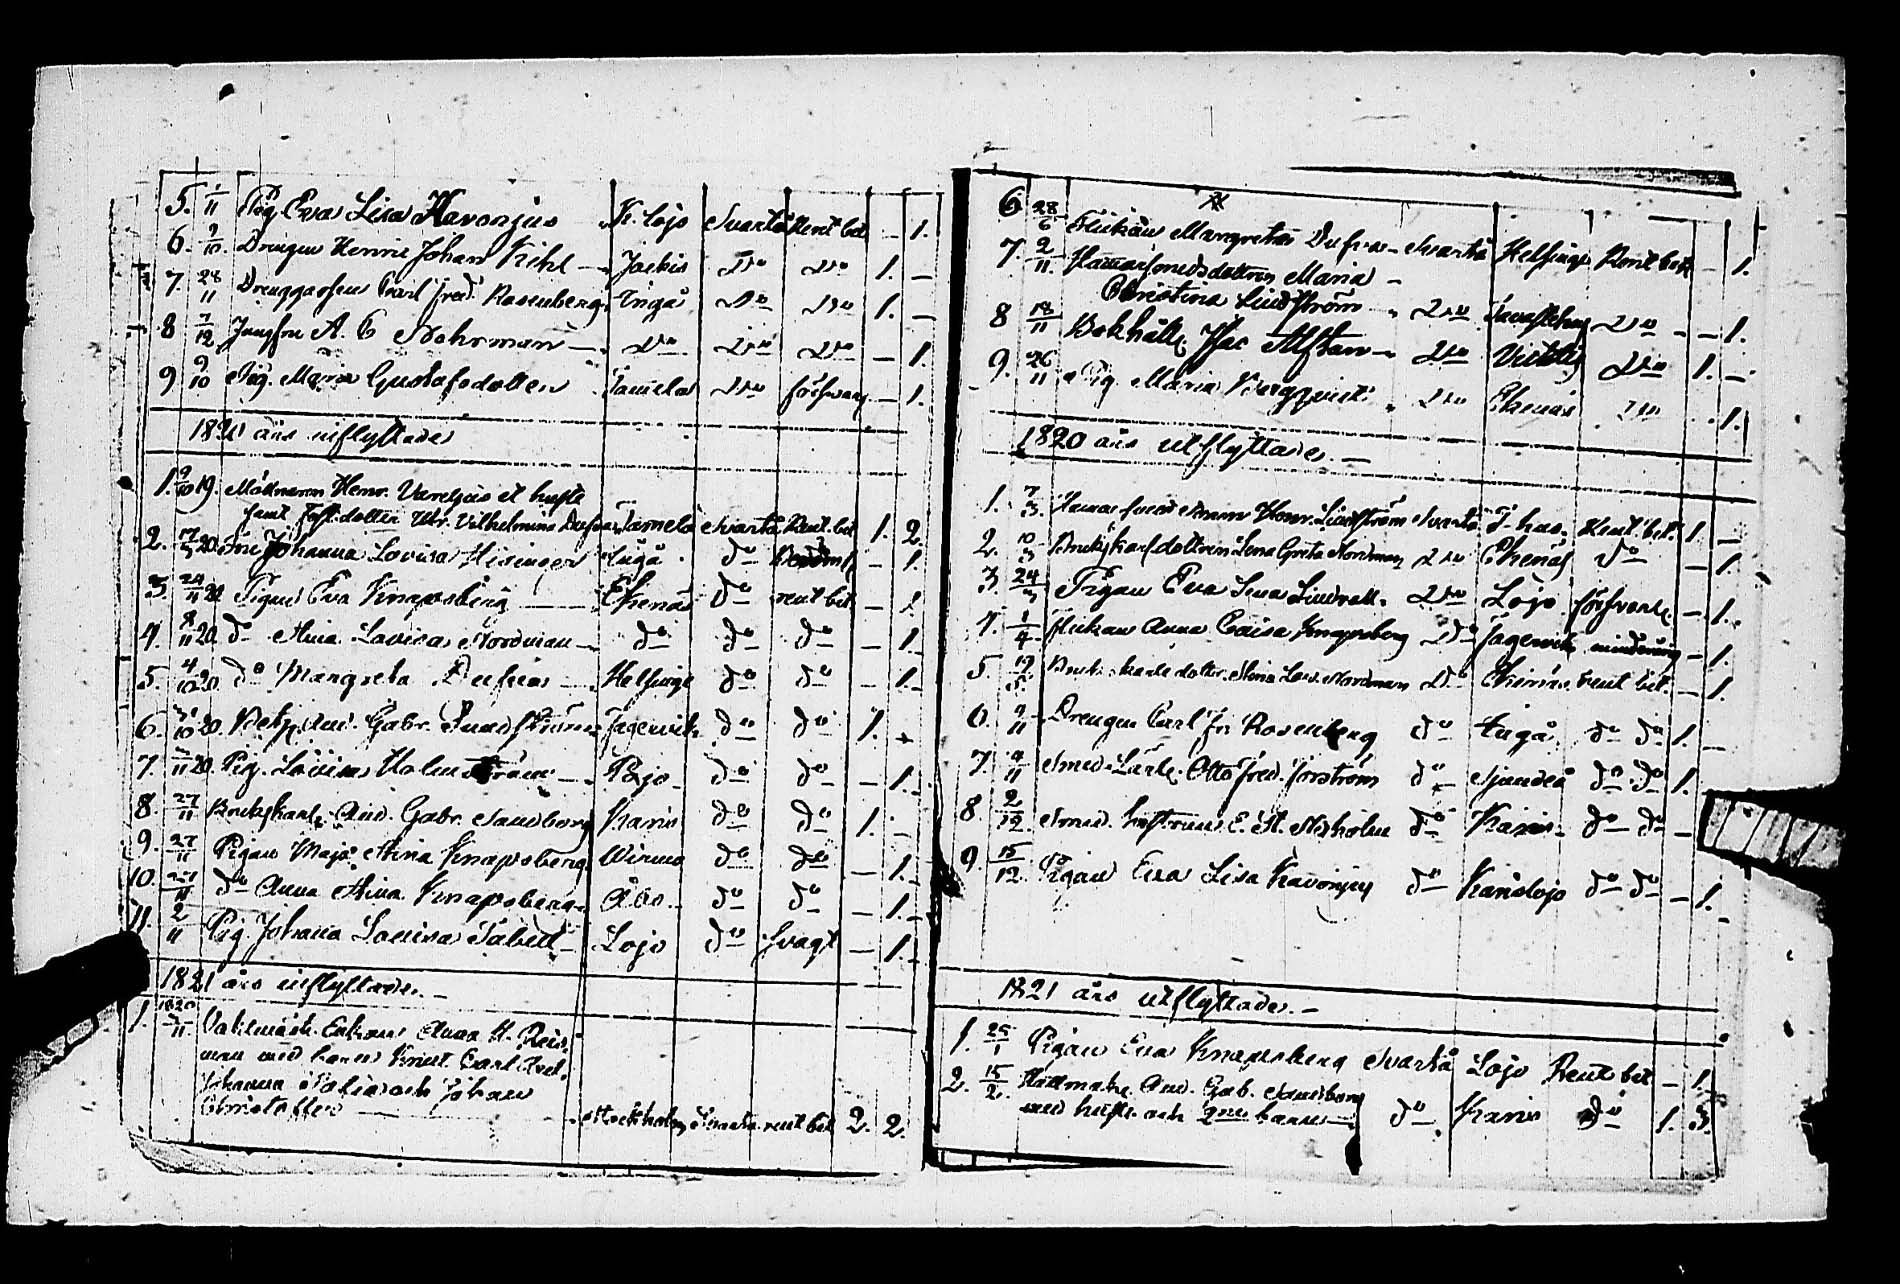 5. 1/11 Pig. Eva Lisa Kavonjus K. Lojo Svartå Rent bet – 1.
6. 9/10 Drengen Henric Johan Kihl – Jockis Do Do 1. –
7 28/11 Drenggossen Carl Fred. Rosenberg Ingå Do Do 1. –
8 7/12 Jungfru A. C. Nohrman – Do Do Do – 1.
9 9/10 Pig. Maria Gustafsdotter Tamela Do förswar – 1.
1820 års inflyttade
1. 9/10 19. Möllnaren Henr. et hustr
samt dotter Wilhelmina Dufva Tamela Svartå Rent. bet 1. 2.
2. 17/3 20. Johanna Lovisa Hisinger Ingå do – 1.
3. 24/11 20 Pigan Eva Knapsberg – Ekenäs do rent bet – 1
4. 8/11 20. do Stina Lovisa Nordman – do do do – 1.
5. 4/10 20 do Margreta Dufva – Helsinge do do – 1.
6. /10 20. And. Gabr. Fagervik do do 1. –
7. /11 20. Pig. Lovisa Holmström – Pojo do do – 1.
8. 27/11 Brukskarl. And. Gabr. Sandborg Karis do do 1. –
9. 27/11 Pigan Maja Stina Knapsberg Wirmo do do – 1. –
10. 27/11 do Anna Stina Knapsberg Åbo – do do – 1. –
11. 2/11 Pig. Johana Lovisa Lojo do svagt – 1. –
1821 års inflyttade. –
1. 1820 /11 Enkan Anna H.
man med barn Knut Carl Axel,
Johanna Sofia och Johan
Christoffer – Stockholm Svarta rent bet 2. 2.
6 28/6 Flickan Margretha Dufva – Svartå Helsinge Rent bet – 1.
7. 2/11. Hamarsmedsdottren Maria –
Christina Lindström – Do Do – – 1.
8 18/11 Bokhåll. Isac Alfstan – Do Wichtis Do 1. –
9. 26/11 Pig. Maria Bergqvist Do Ekenäs Do . 1.
1820 års utflyttade. –
1. 7/3. Hamarsmeds Henr. Lindström Svartå Rent bet. 1. –
2. 10/3 Brukskarlsdottren Lena Greta Nordman Do Ekenäs do – 1.
3. 24/3 Pigan Eva Lena Lindvall. Do Lojo försvarl – 1.
4. 1/4 Flickan Anna Caisa Knapsberg Do Fagervik minderårig – 1.
5. 19/5. Brukskarls dotter. Stina Lov. Nordman Do Ekenäs rent bet. – 1.
6. 9/11 Drengen Carl Fr. Rosenberg do Ingå do do 1. –
7. 9/11 Smed. Lärl. Otto Fred. Forström do Sjundeå do do 1.
8. 2/12. Smed. hustrun E. St. Asholm do Karis – do do –
9. 15/12. Pigan Eva Lisa Kavonjus do Karislojo do do – 1. –
1821 års utflyttade. –
1. 25/1 Pigan Eva Knapsberg Svartå Lojo Rent bet – 1.
2. 15/2. And. Gab. Sandborg
med hustr. och 2ne barn – do Karis do 1. 3.